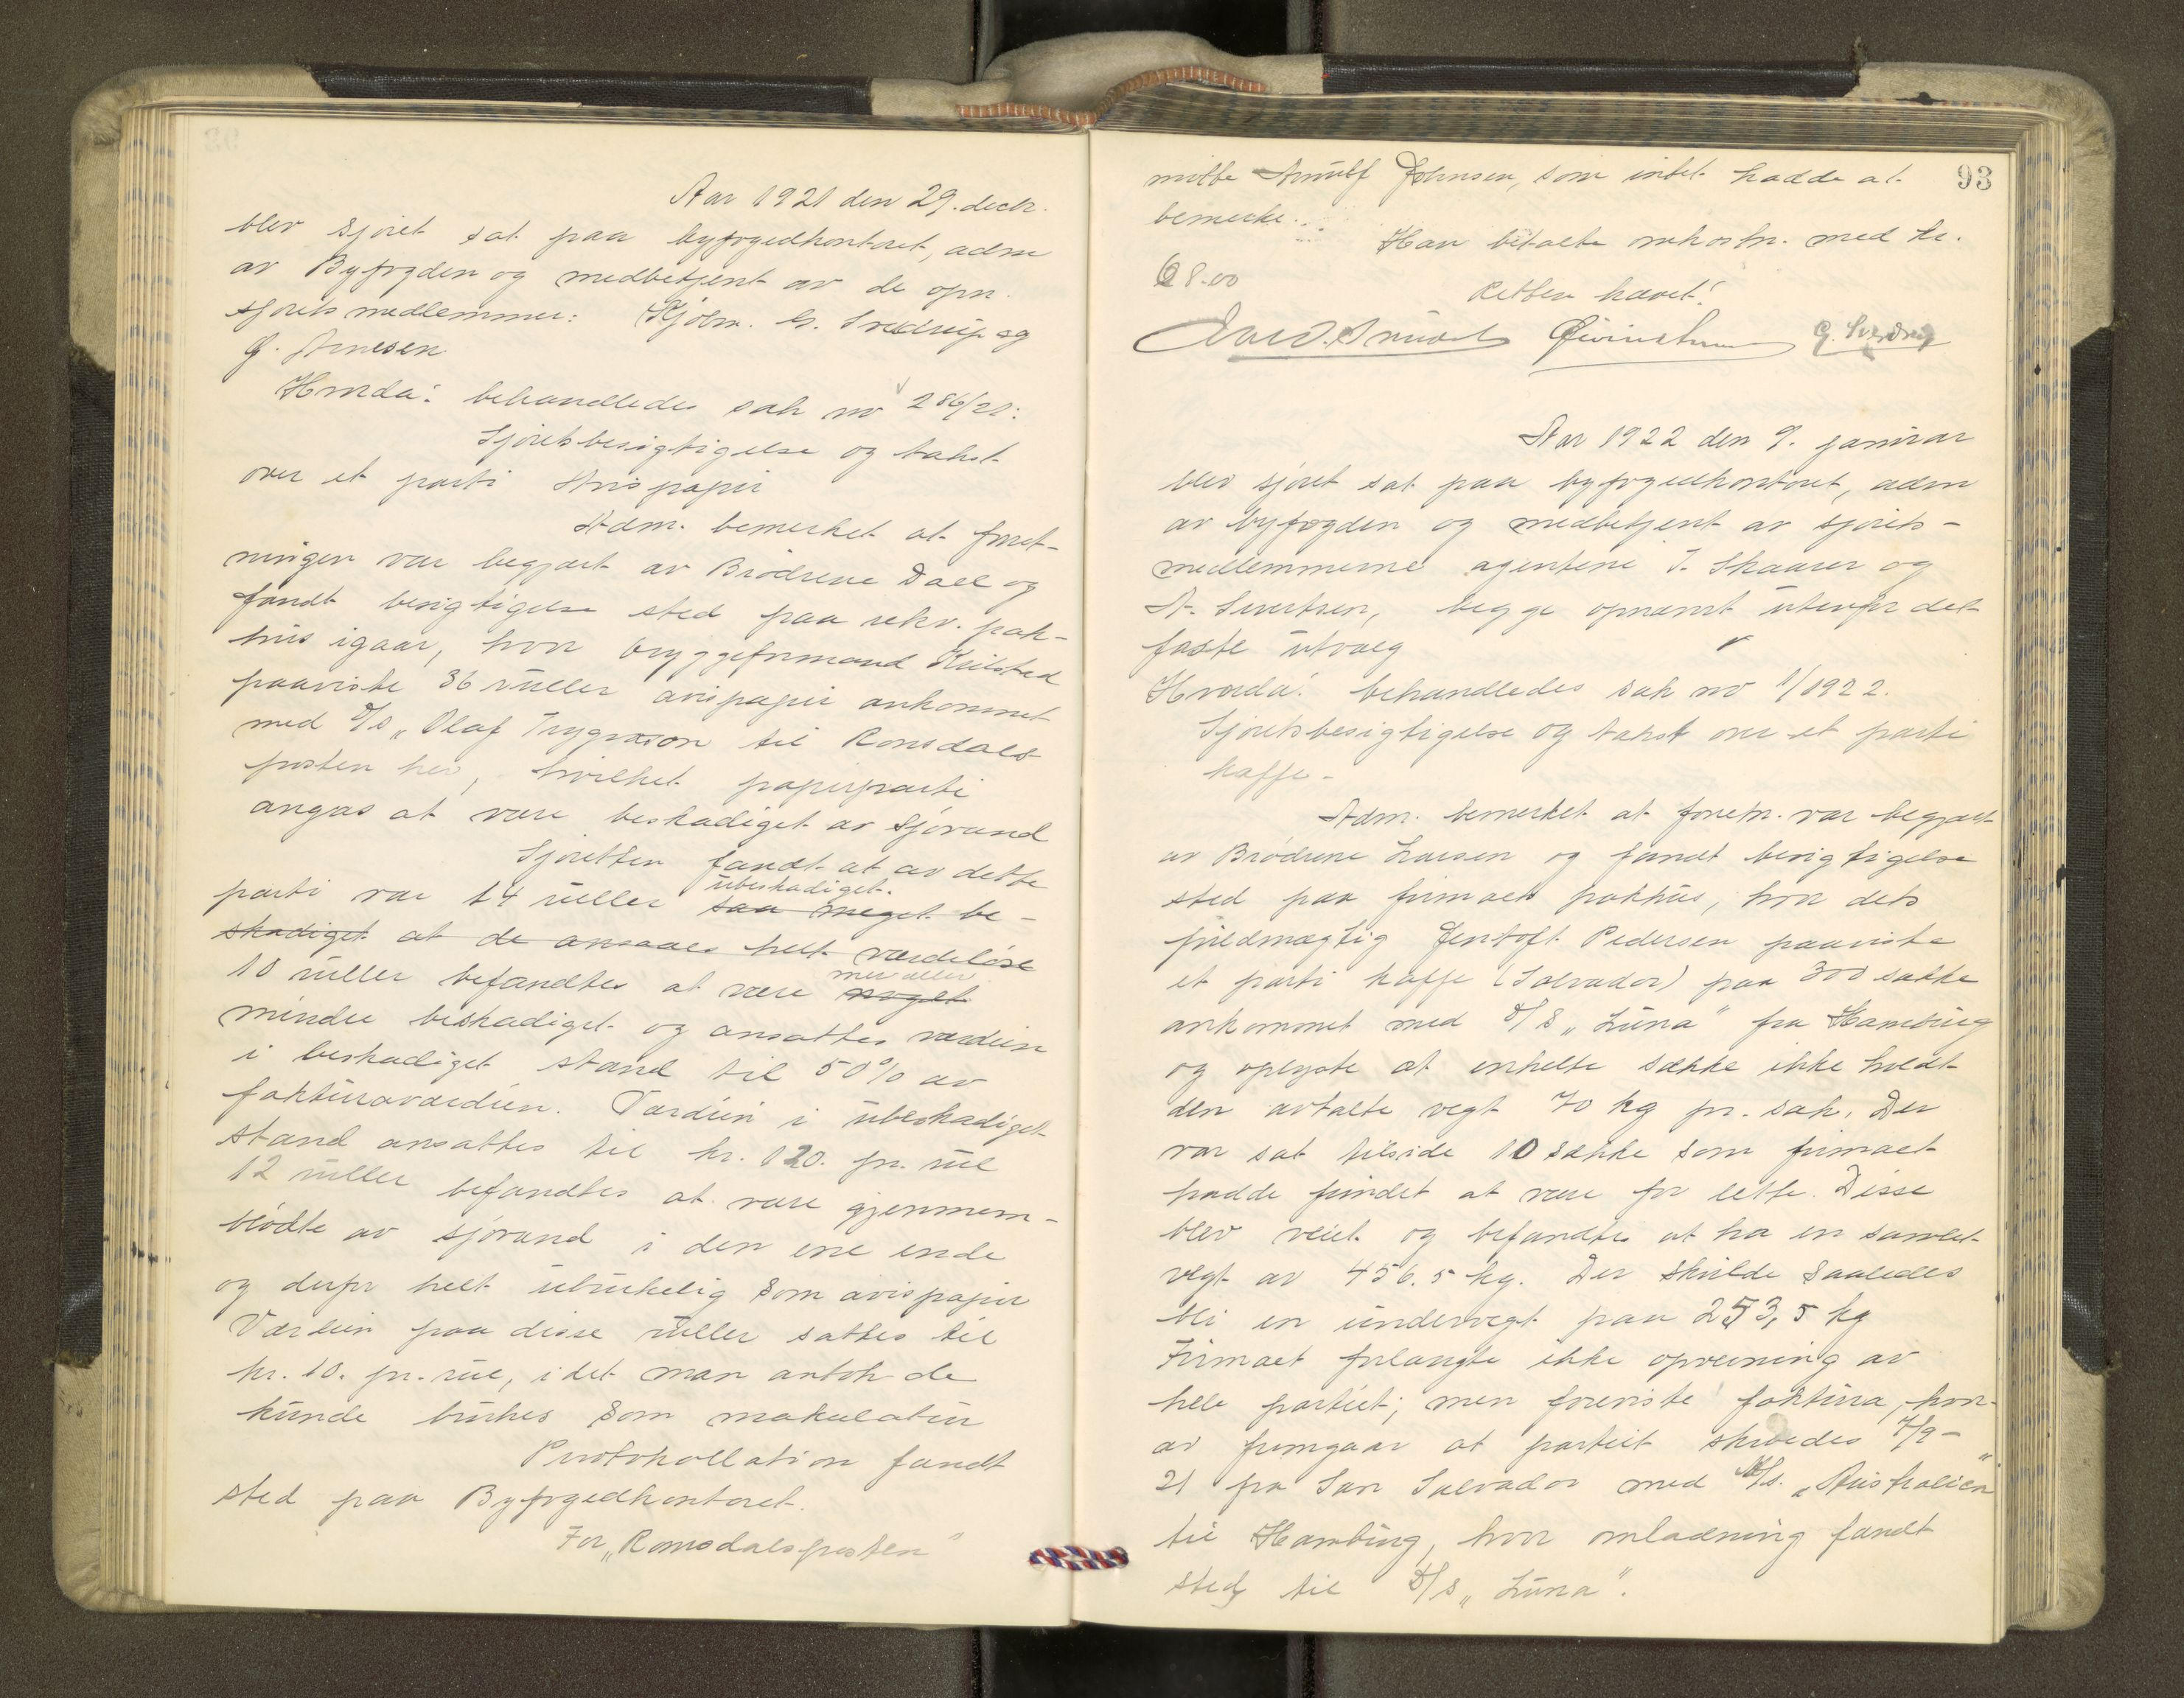 Aar 1921 den 29. decbr.
blev sjöret sat paa byfogedkontoret, adm
av Byfogden og medbetjent av de opn.
sjöretsmedlemmer: Kjölm. G. Sverdrup og
Ø. Arnesen
Hvorda: behandledes sak no 286/21:
Sjöretsbesigtigelse og takst
over et parti Avispapir
Adm. bemerket at forret-
ningen var begjært av Brödrene Dall og
fandt besigtigelse sted paa rekv. pak-
hus igaar, hvor bryggeformand Keilsted
paaviste 36 ruller avispapir ankommet
med D/S „Olaf Trygvason til Romsdals-
posten her, hvilket papirparti
angaves at være beskadiget av sjövand
Sjöretten fandt at av dette
parti var 14 ruller ubeskadiget. saa meget be-
skadiget at de ansaaes helt værdelöse
10 ruller befandtes at være mer eller noget
mindre beskadiget og ansattes værdien
i beskadiget stand til 50% av
fakturaværdien. Værdien i ubeskadiget
stand ansattes til kr. 120. pr. rul
12 ruller befandtes at være gjennem-
blödte av sjövand i den ene ende
og derfor helt ubrukelig som avispapir
Værdien paa disse ruller sattes til
kr. 10. pr. rul, idet man antok de
kunde brukes som makulatur
Protokollation fandt
sted paa Byfogedkontoret.
For „Romsdalsposten"
93
mötte Arnulf Johnsen, som intet hadde at
bemerke.
Han betalte omkostn. med kr.
68.00
Retten hævet!
G. Sverdrup
Aar 1922 den 9. januar
blev sjöret sat paa byfogedkontoret, adm
av byfogden og medbetjent av sjörets-
medlemmerne agentene J. Skaarer og
A. Sivertsen, begge opnævnt utenfor det
faste utvalg
Hvorda: behandledes sak no 1/1922.
Sjöretsbesigtigelse og takst over et parti
kaffe -
Adm. bemerket at forretn. var begjært
av Brödrene Larsen og fandt besigtigelse
sted paa firmaets pakhus, hvor dets
fuldmægtig Jentoft Pedersen paaviste
et parti kaffe (Salvador) paa 300 sække
ankommet med D/S „Luna" fra Hamburg
og oplyste at enkelte sække ikke holdt
den avtalte vegt 70 kg pr. sak. Der
var sat tilside 10 sække som firmaet
hadde fundet at være for lette. Disse
blev veiet og befandtes at ha en samlet
vegt av 456.5 kg. Der skulde saaledes
bli en undervegt paa 253,5 kg
Firmaet forlangte ikke opveining av
hele partiet; men foreviste faktura, hvor-
av fremgaar at partiet skibedes 7/9-
21 fra San Salvador med M/S. „Australien"
til Hamburg, hvor omladning fandt
sted til D/S „Luna".